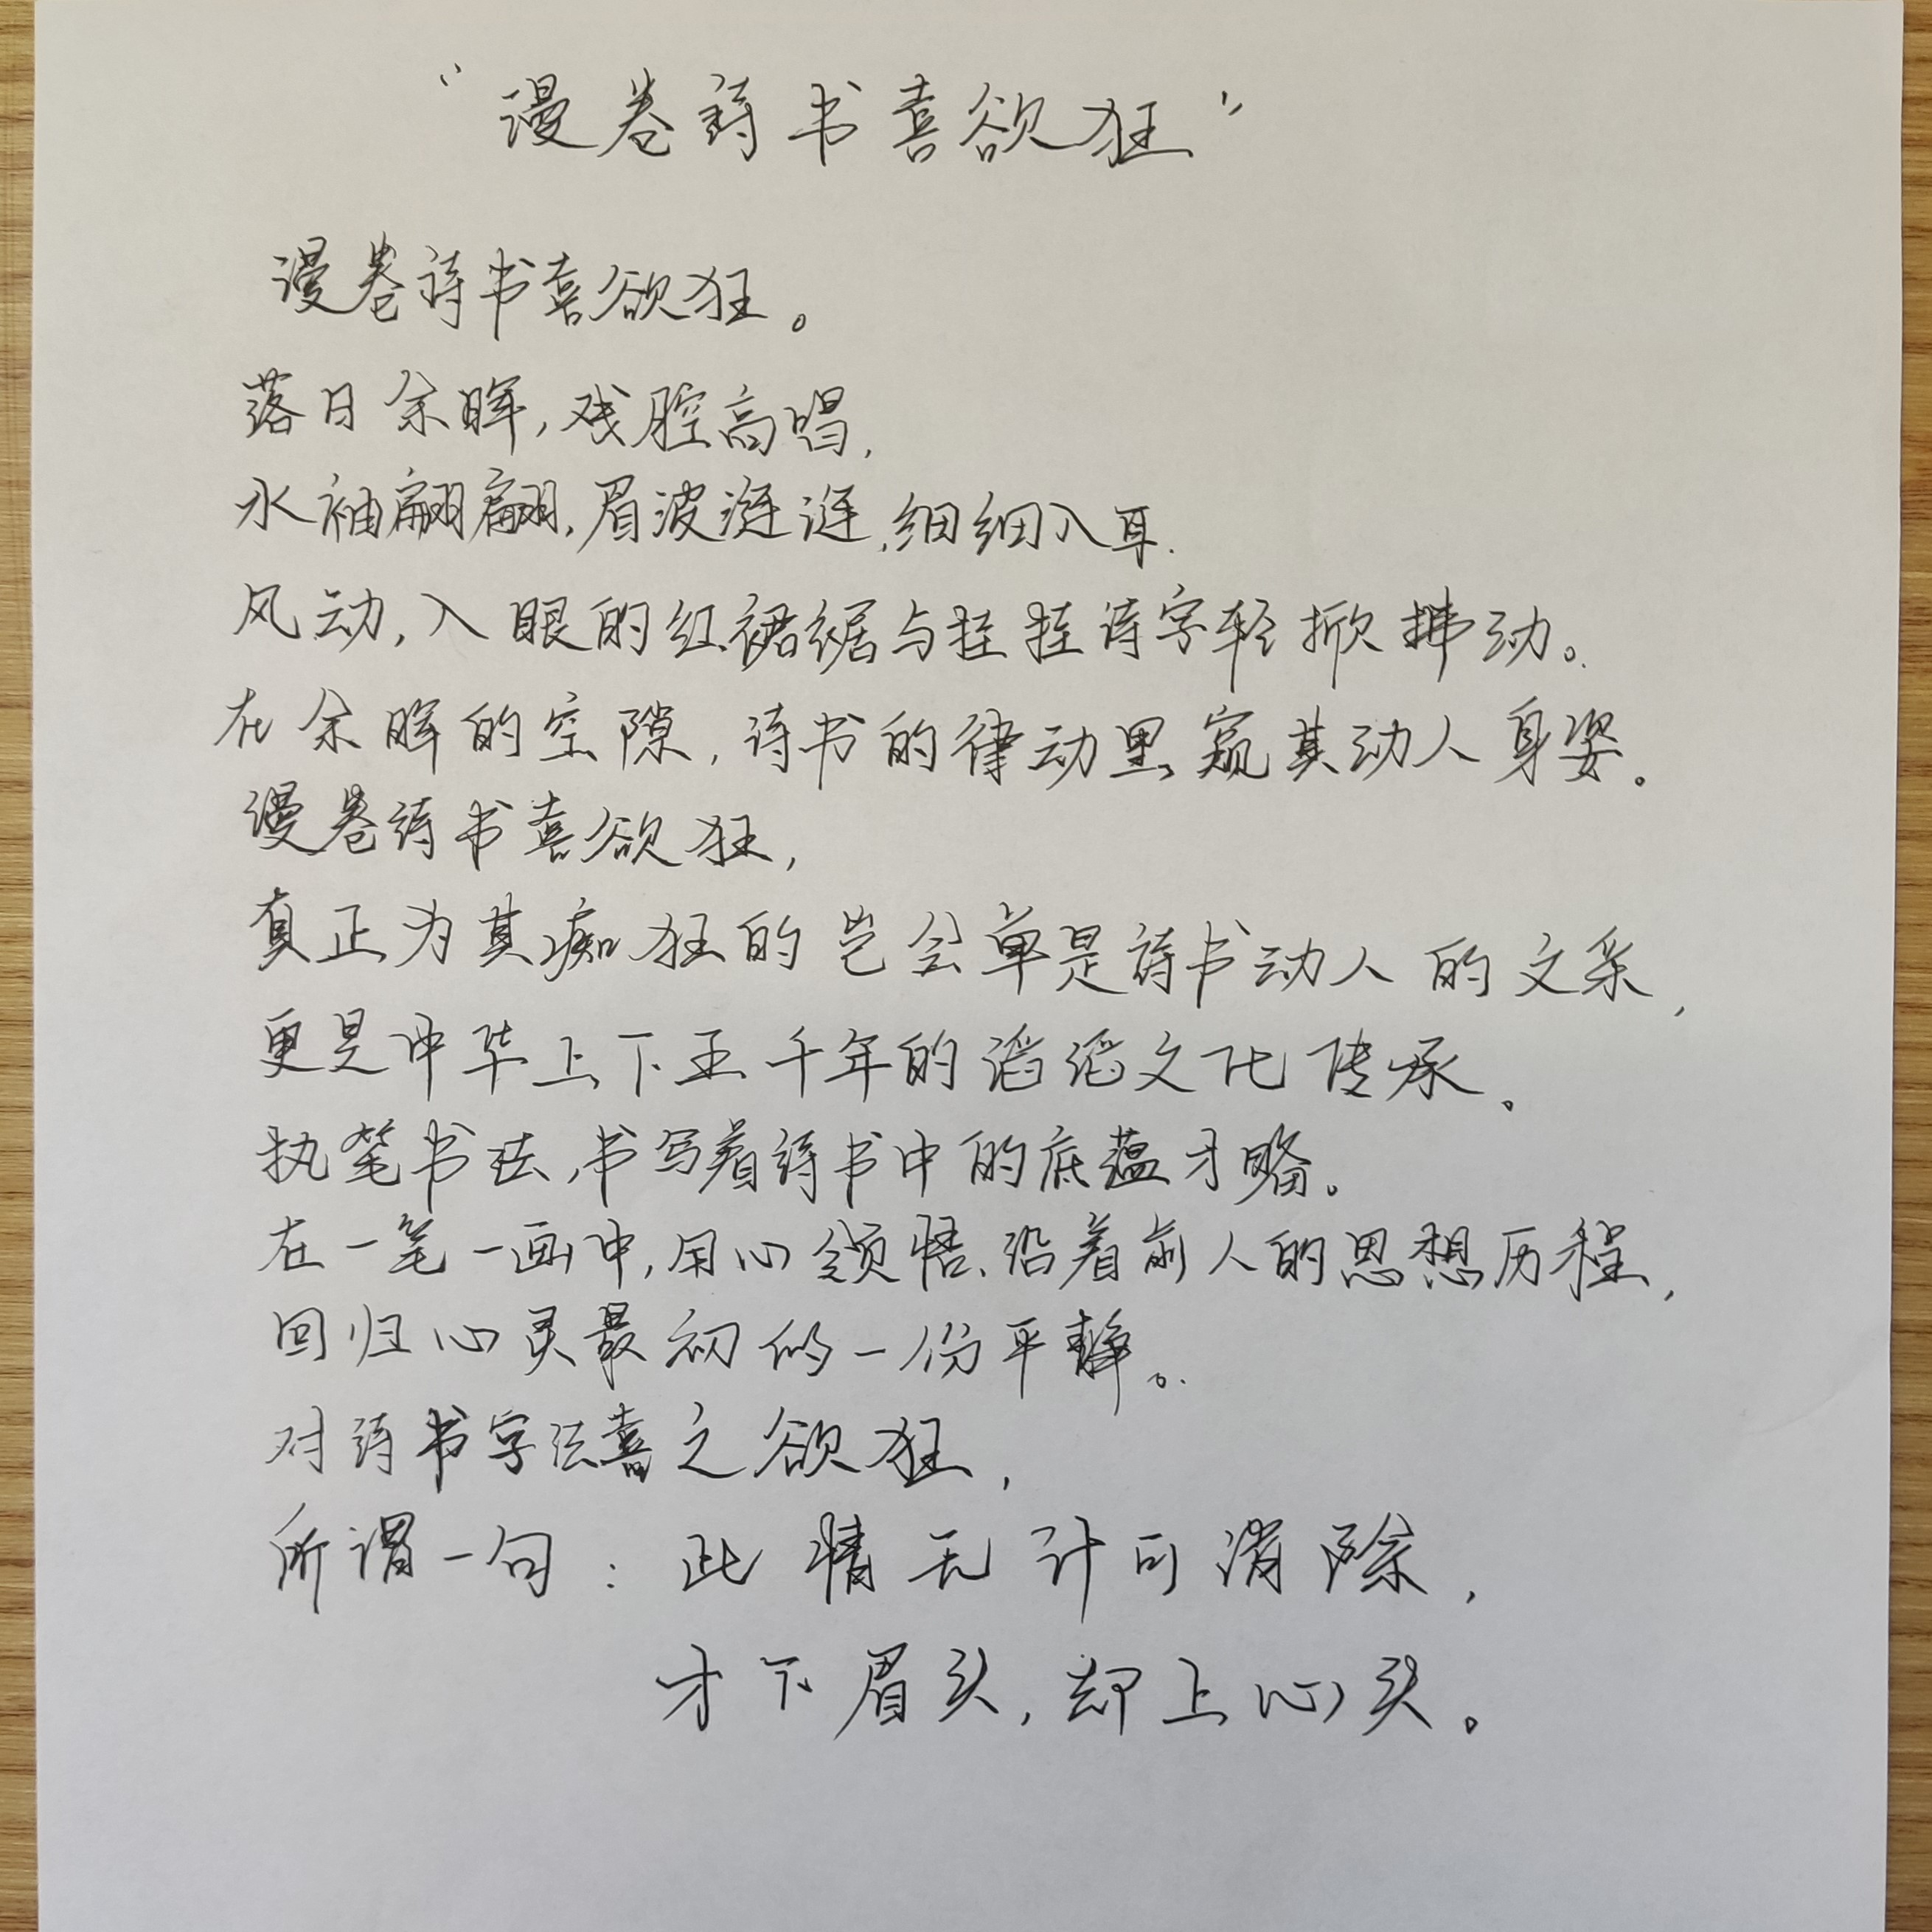 “漫卷诗书喜欲狂”
漫卷诗书喜欲狂。
落日余晖,残腔高唱,
水袖翩翩,眉波涟涟,细细入耳.
风动,入眼的红裙裾与挂挂诗字轻掀拂动。
在余晖的空隙,诗书的律动里窥其动人身姿。
漫卷诗书喜欲狂,
真正为其痴狂的岂会单是诗书动人的文采,
更是中华上下五千年的滔滔文化传承。
执笔书法,书写着诗书中的底蕴才略。
在一笔一画中,用心领悟、沿着前人的思想历程,
回归心灵最初的一份平静。
对诗书字法喜之欲狂,
所谓一句:此情无计可消除,
才下眉头,却上心头。